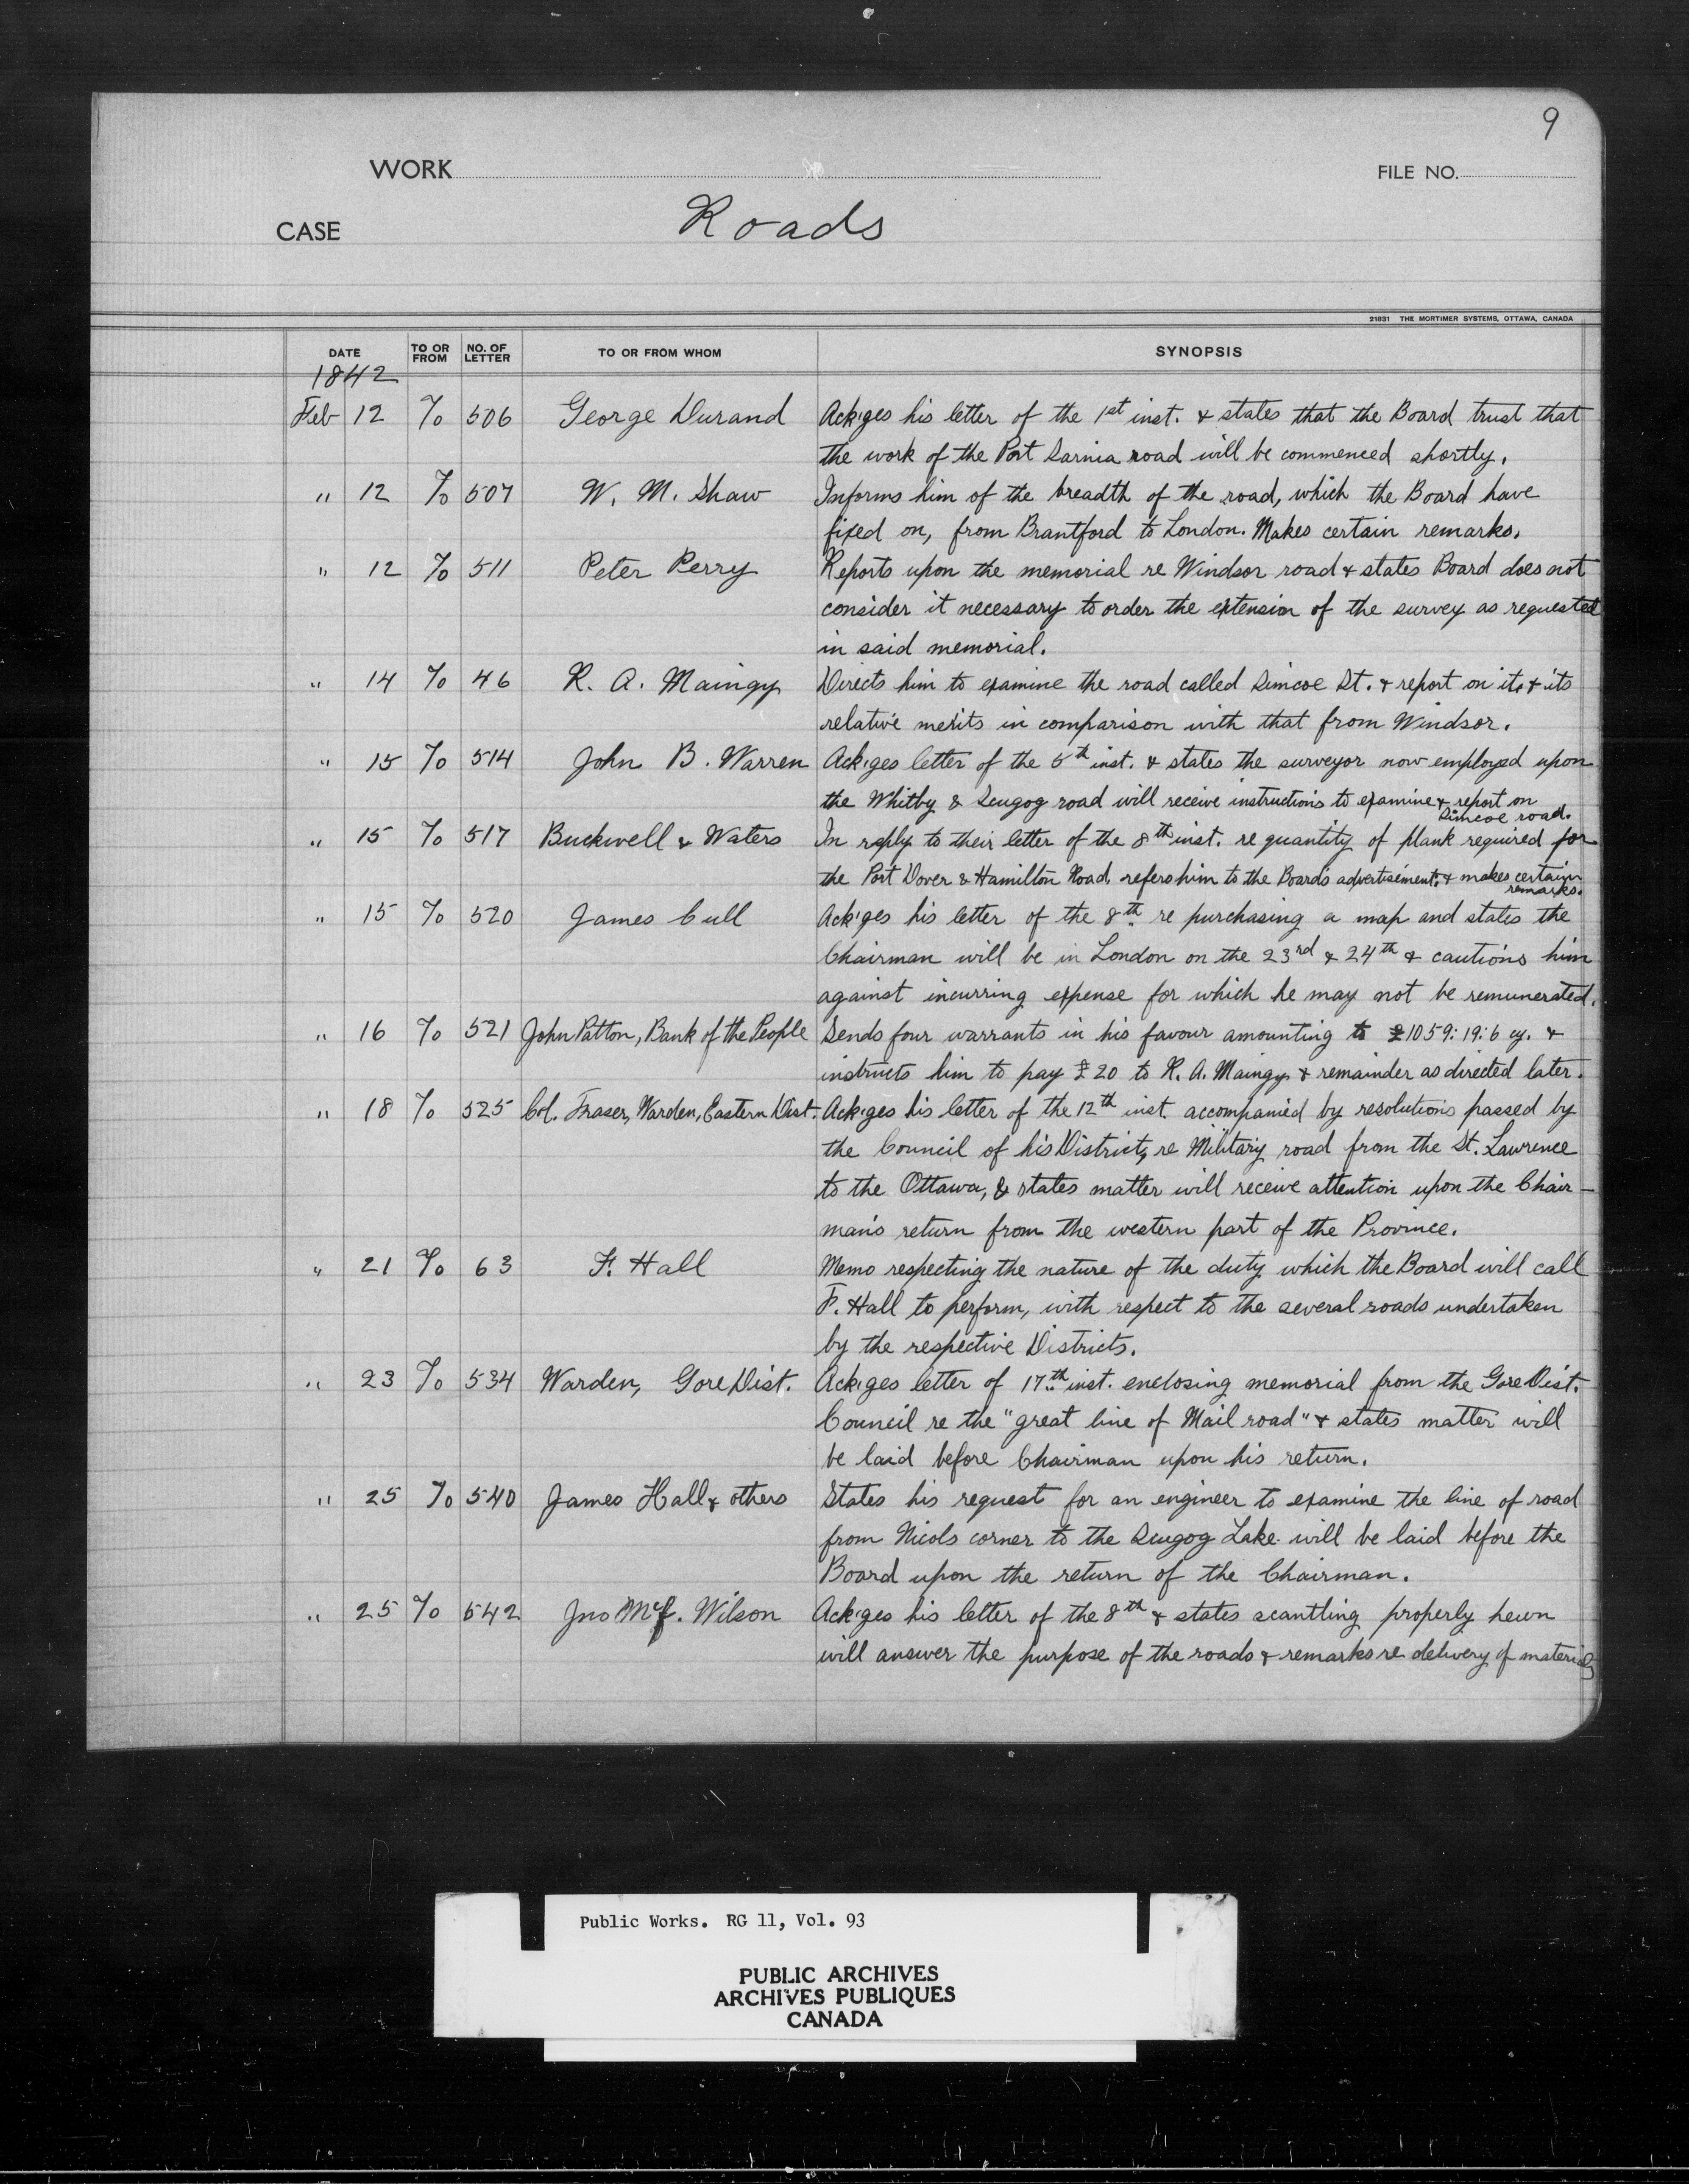 9
WORK
FILE NO.
CASE
Roads
21831 THE MORTIMER SYSTEMS, OTTAWA, CANADA
DATE TO OR FROM NO. OF LETTER TO OR FROM WHOM SYNOPSIS
1842
Feb 12 To 506 George Durand Ack'ges his letter of the 1st inst. & states that the Board trust that
the work of the Port Sarnia road will be commenced shortly.
" 12 To 507 W. M. Shaw Informs him of the breadth of the road, which the Board have
fixed on, from Brantford to London. Makes certain remarks.
" 12 To 511 Peter Perry Reports upon the memorial re Windsor road & states Board does not
consider it necessary to order the extension of the survey as requested
in said memorial.
" 14 To 46 R. A. Maingy Directs him to examine the road called Simcoe St. & report on it, & its
relative merits in comparison with that from Windsor.
" 15 To 514 John B. Warren Ack'ges letter of the 5th inst. & states the surveyor now employed upon
the Whitby & Scugog road will receive instructions to examine & report on
Simcoe road.
" 15 To 517 Buckwell & Waters In reply to their letter of the 8th inst. re quantity of plank required for
the Port Dover & Hamilton Road, refers him to the Board's advertisements & makes certain
remarks.
" 15 To 520 James Cull Ack'ges his letter of the 8th re purchasing a map and states the
Chairman will be in London on the 23rd & 24th & cautions him
against incurring expense for which he may not be remunerated.
" 16 To 521 John Patton, Bank of the People Sends four warrants in his favour amounting to £1059:19:6 cy. &
instructs him to pay £20 to R. A. Maingy & remainder as directed later.
" 18 To 525 Col. Fraser, Warden, Eastern Dist. Ack'ges his letter of the 12th inst. accompanied by resolutions passed by
the Council of his District, re Military road from the St. Lawrence
to the Ottawa, & states matter will receive attention upon the Chair-
man's return from the western part of the Province.
" 21 To 63 F. Hall Memo respecting the nature of the duty which the Board will call
F. Hall to perform, with respect to the several roads undertaken
by the respective Districts.
" 23 To 534 Warden, Gore Dist. Ack'ges letter of 17th inst. enclosing memorial from the Gore Dist.
Council re the "great line of Mail road" & states matter will
be laid before Chairman upon his return.
" 25 To 540 James Hall & others States his request for an engineer to examine the line of road
from Nicols corner to the Scugog Lake will be laid before the
Board upon the return of the Chairman.
" 25 To 542 Jno Wilson Ack'ges his letter of the 8th & states scantling properly hewn
will answer the purpose of the roads & remarks re delivery of materials
Public Works. RG 11, Vol. 93
PUBLIC ARCHIVES
ARCHIVES PUBLIQUES
CANADA